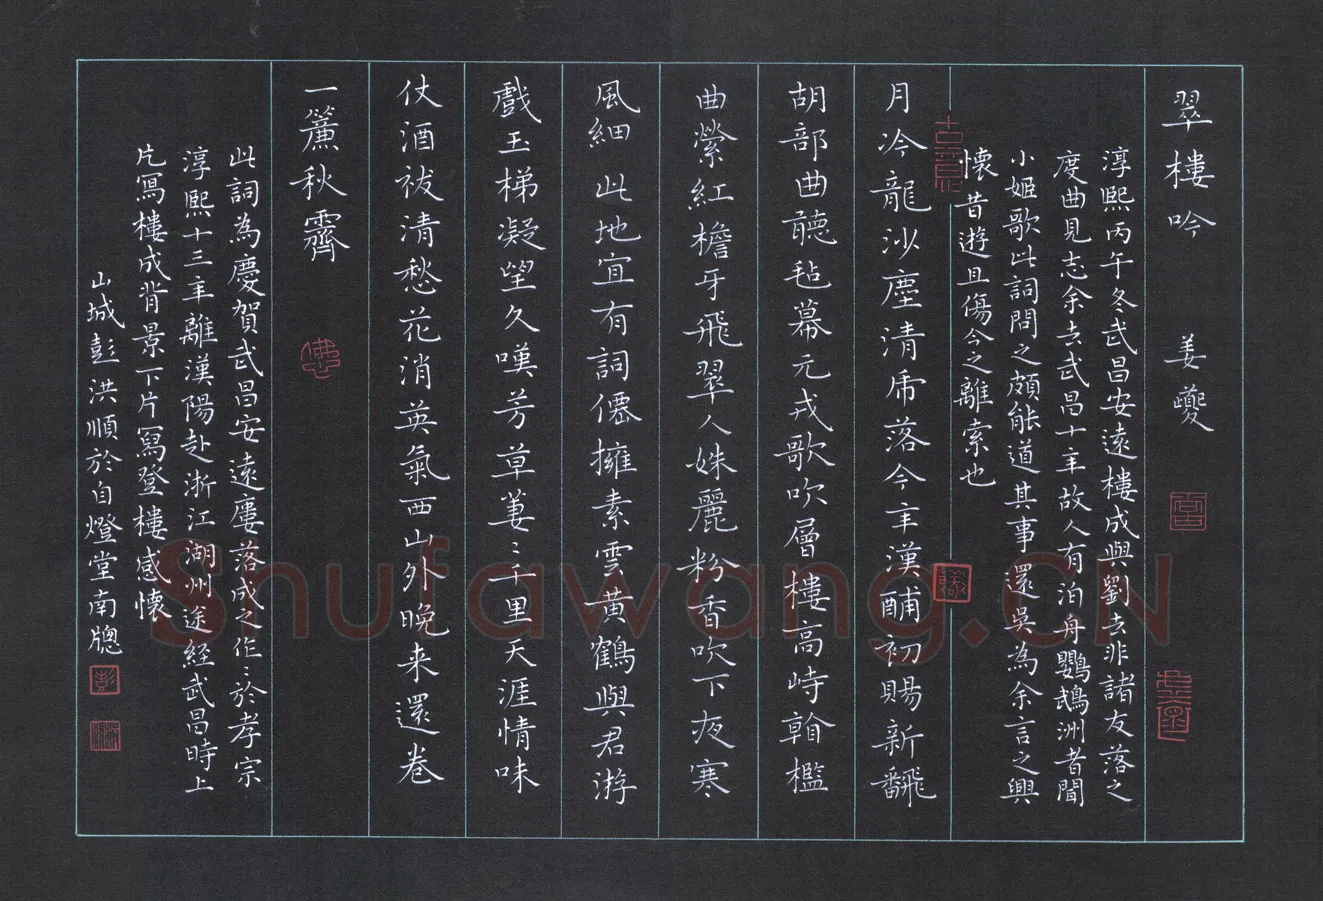 翠樓吟 姜夔
淳熙丙午冬武昌安遠樓成與劉去非諸友落之
度曲見志余去武昌十年故人有泊舟鸚鵡洲者聞
小姬歌此詞問之頗能道其事還吳為余言之興
懷昔遊且傷今之離索也
月冷龍沙塵清虎落今年漢酺初賜新翻
胡部曲聽氈幕元戎歌吹層樓高峙看檻
曲縈紅檐牙飛翠人姝麗粉香吹下夜寒
風細此地宜有詞僊擁素雲黃鶴與君游
戲玉梯凝望久嘆芳草萋〻千里天涯情味
仗酒祓清愁花消英氣西山外晚来還卷
一簾秋霽
此詞為慶賀武昌安遠廔落成之作〻於孝宗
淳熙十三年離漢陽赴浙江湖州途経武昌時上
片寫樓成背景下片寫登樓感懷
山城彭洪順於自燈堂南牕
Shufawang.CN